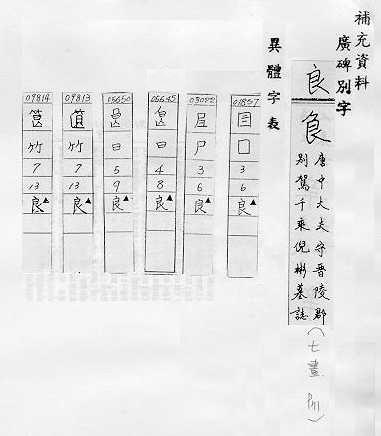 補充資料
廣碑別字
良
唐中大夫守晉陵郡
別駕千乘倪彬墓誌
(七畫
異體字表
01857
囗
3
6
良▲
03022
尸
3
6
良▲
05645
日
4
8
良▲
05650
日
5
9
良▲
09813
竹
7
13
良▲
09814
竹
7
13
良▲